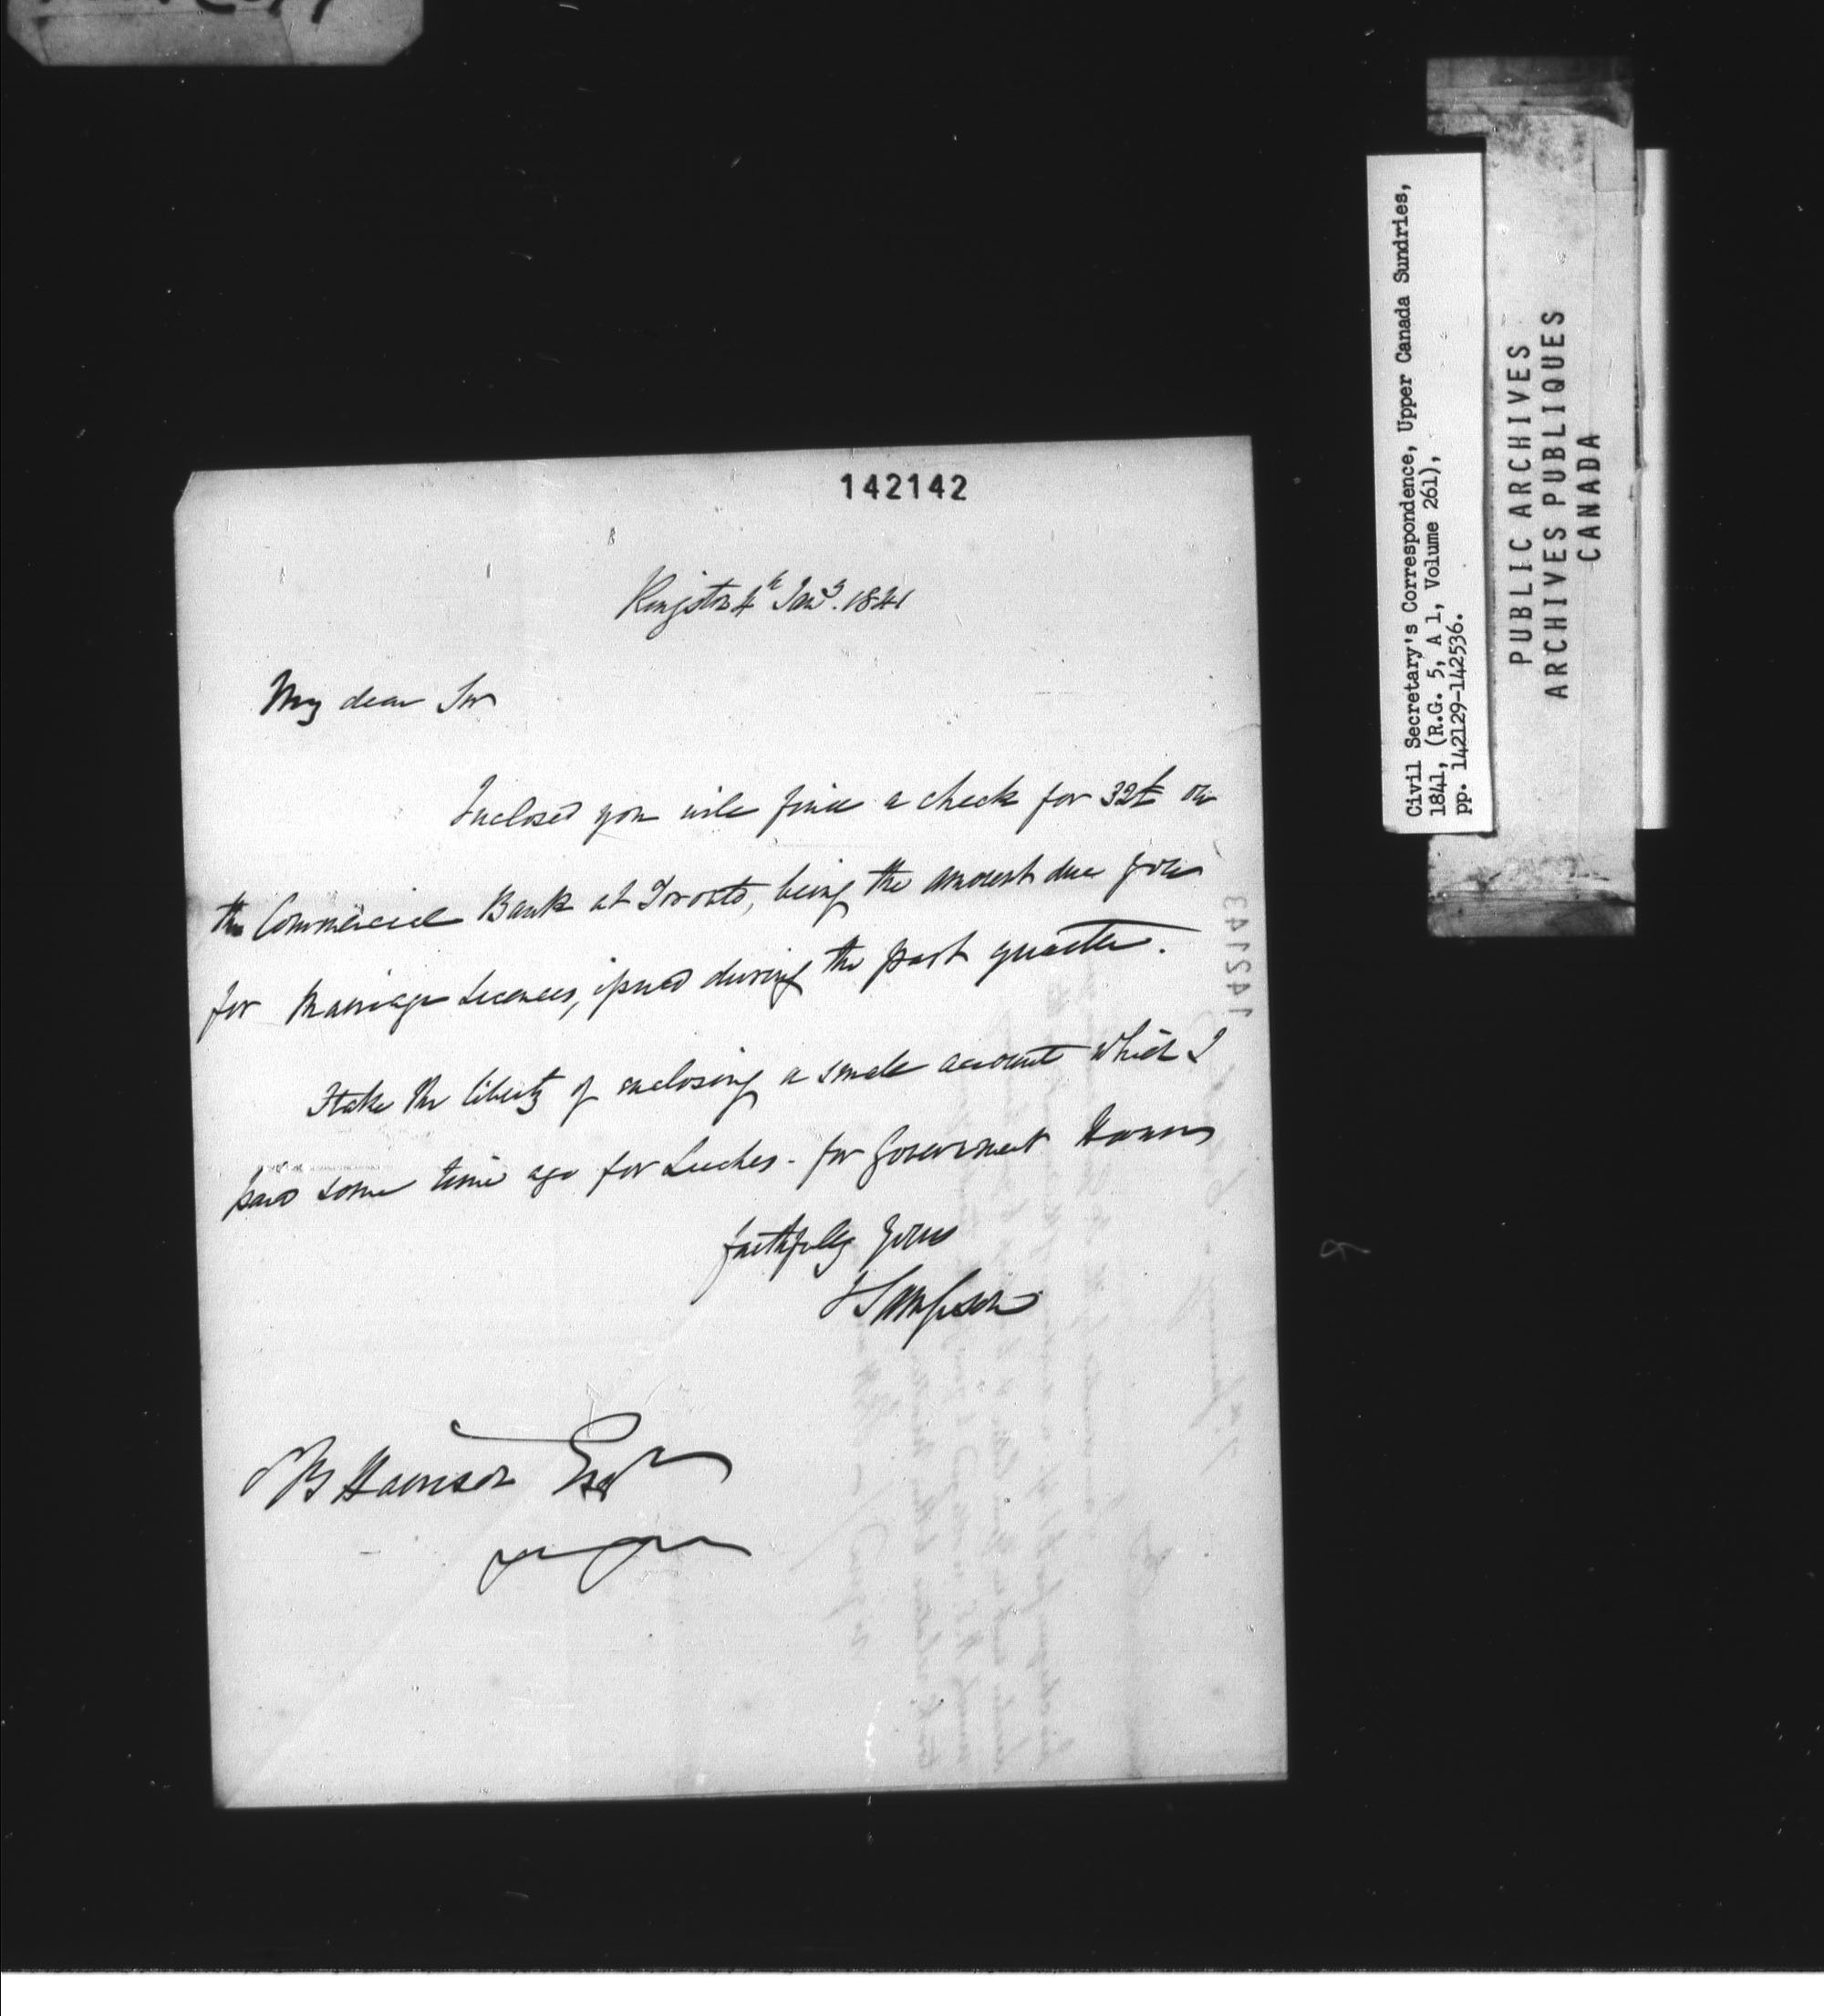 142142
Kingston 4th Jany. 1841
My dear Sir
Inclosed you will find a check for 32£ on
the Commercial Bank at Toronto, being the amount due from
for Marriage Licences, issued during the past quarter.
I take the liberty of enclosing a small account which I
paid some time ago for Leeches - for Government House
faithfully yours
J Sampson
S B Harrison Esqr
142143
Civil Secretary's Correspondence, Upper Canada Sundries,
1841, (R.G. 5, A 1, Volume 261),
pp. 142129-142536.
PUBLIC ARCHIVES
ARCHIVES PUBLIQUES
CANADA